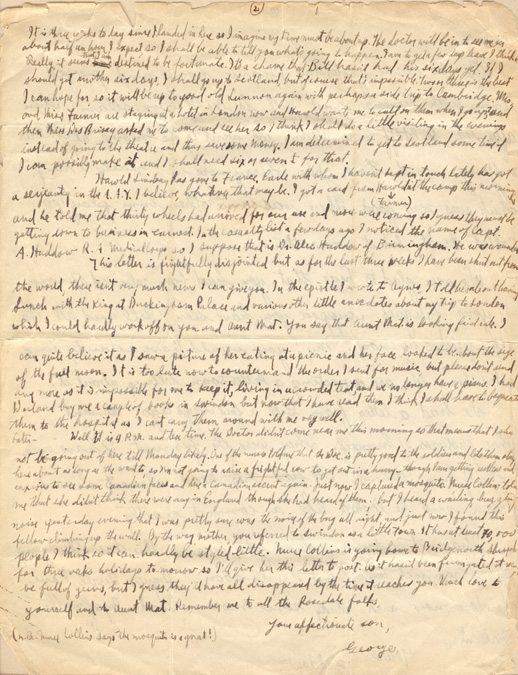 (2)
It is three weeks to-day since I landed in here so I imagine my time must be about up. The doctor will be in to see me in
about half an hour I expect so I shall be able to tell you what's going to happen. I am to get six days leave I think.
Really it seems that I am destined to be fortunate. It's a shame that Bill hasn't had his six days yet. If I
should get another six days, I shall go to Scotland but of course that's impossible. Two or three is the best
I can hope for so it will be up to good old Lunnon again with perhaps a side trip to Cambridge. Mrs.
and Miss Farmer are staying at a hotel in London now and Harold wants me to call on them when I go up and
then Miss Bussey asked me to come and see her so I think I shall do a little visiting in the evenings
instead of going to the theatre and thus save some money. I am determined to get to Scotland some time if
I can possibly make it and I shall need six or seven £ for that.
Harold Lindsay has gone to France, Earle with whom I haven't kept in touch lately has got
a sergeantcy in the A.S.C. I believe, whatever that may be. I got a card from Harold at the camp this morning
(Farmer)
and he told me that thirty wheels had arrived for our use and more were coming so I guess they must be
getting down to business in earnest. In the casualty list a few days ago I noticed the name of Capt.
A. Haddow R.A. Medical Corps so I suppose that is Dr. Alec Haddow of Birmingham. He was wounded.
This letter is frightfully disjointed but as for the last three weeks I have been shut out from
the world, there isn't very much news I can give you. In the epistle I wrote to Agnes I told her about having
lunch with the King at Buckingham Palace and various other little anecdotes about my trip to London
which I could hardly work off on you and Aunt Mat. You say that Aunt Mat is looking first rate. I
can quite believe it as I saw a picture of her eating at a picnic and her face looked to be about the size
of the full moon. It is too late now to countermand the order I sent for music but please don't send
any more as it is impossible for me to keep it, living in a crowded tent and we no longer have a piano. I had
buy me a couple of books in Swindon but now that I have read them I think I shall have to bequeath
them to the hospital as I can't carry them around with me very well.
Later - Well it is 4 P.M. and tea time. The Doctor didn't come near me this morning so that means that I shall
not be going out of here till Monday likely. One of the nurses told me that the Doc. is pretty good to the soldiers and lets them stay
here about as long as they want to so I'm not going to raise a frightful row to get out in a hurry though I am getting restless and
anxious to see some Canadian faces and hear a Canadian accent again. Just now I captured a mosquito. Nurse Collins told
me that she didn't think there were any in England though she had heard of them. but I heard a wailing buzzing
noise yesterday evening that I was pretty sure was the noise of the bug all right, and just now I found this
fellow climbing up the wall. By the way mother, you referred to Swindon as a little town. It has at least 70,000
people I think so it can hardly be styled little. Nurse Collins is going home to
for three weeks holidays to-morrow so I'll give her this letter to post. As it has been fumigated it won't
be full of germs, but I guess they'd have all disappeared by the time it reaches you. Much love to
yourself and to Aunt Mat. Remember me to all the Rosedale folks.
Your affectionate son,
George.
(N.B. Nurse Collins says the mosquito is a gnat!)